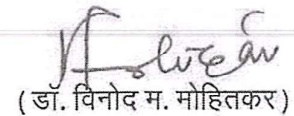 (डॉ. विनोद म. मोहितकर)